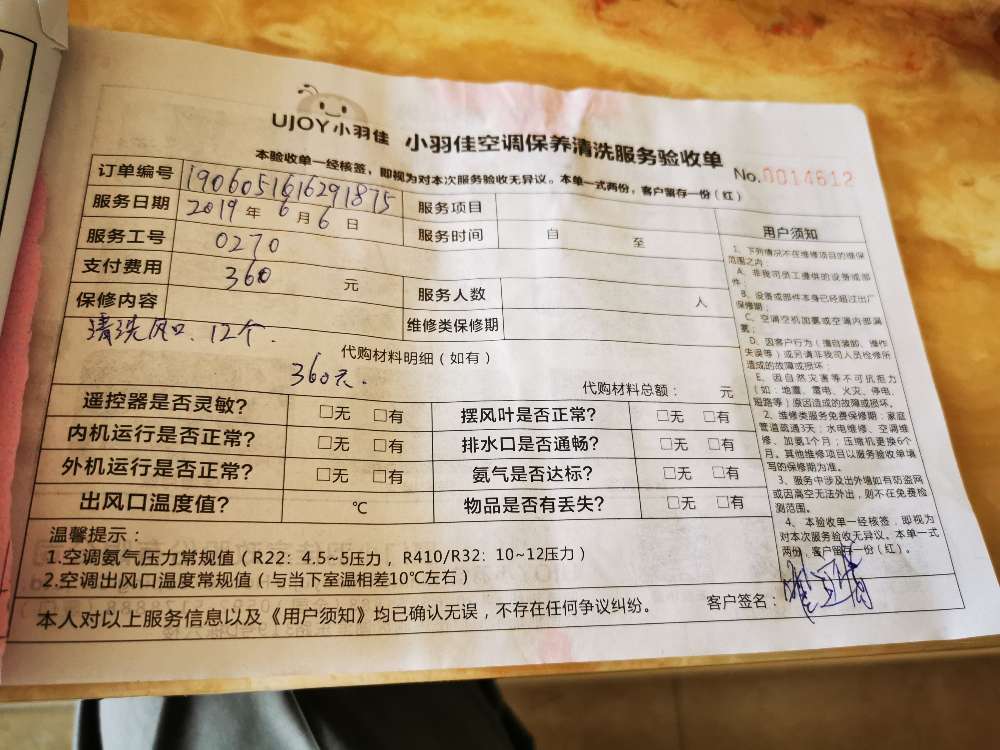 UJOY小羽佳 小羽佳空调保养清洗服务验收单
No.0014612
本验收单一经核签，即视为对本次服务验收无异议。本单一式两份，客户留存一份（红）
订单编号 1906051616291875 服务项目
服务日期 2019年6月6日 服务时间 自 至
服务工号 0270
支付费用 360 元 服务人数 人
保修内容 维修类保修期
清洗风口、12个.
代购材料明细（如有）
360元.
代购材料总额： 元
遥控器是否灵敏? □无 □有 摆风叶是否正常? □无 □有
内机运行是否正常? □无 □有 排水口是否通畅? □无 □有
外机运行是否正常? □无 □有 氨气是否达标? □无 □有
出风口温度值? ℃ 物品是否有丢失? □无 □有
温馨提示：
1.空调氨气压力常规值（R22：4.5~5压力，R410/R32：10~12压力）
2.空调出风口温度常规值（与当下室温相差10℃左右）
本人对以上服务信息以及《用户须知》均已确认无误，不存在任何争议纠纷。 客户签名：
用户须知
1、下列情况不在维修项目的维保
范围之内：
A、非我司员工提供的设备或部
件；
B、设备或部件本身已经超过出厂
保修期；
C、空调空机加氨或空调内部漏
氨；
D、因客户行为（擅自装卸、操作
失误等）或另请非我司人员检修所
造成的故障或损坏；
E、因自然灾害等不可抗拒力
（如：地震、雷电、火灾、停电、
短路等）原因造成的故障或损坏。
2、维修类服务免费保修期：家庭
管道疏通3天；水电维修、空调维
修、加氨1个月；压缩机更换6个
月。其他维修项目以服务验收单填
写的保修期为准。
3、服务中涉及出外墙如有防盗网
或因高空无法外出，则不在免费检
测范围。
4、本验收单一经核签，即视为
对本次服务验收无异议。本单一式
两份，客户留存一份（红）。